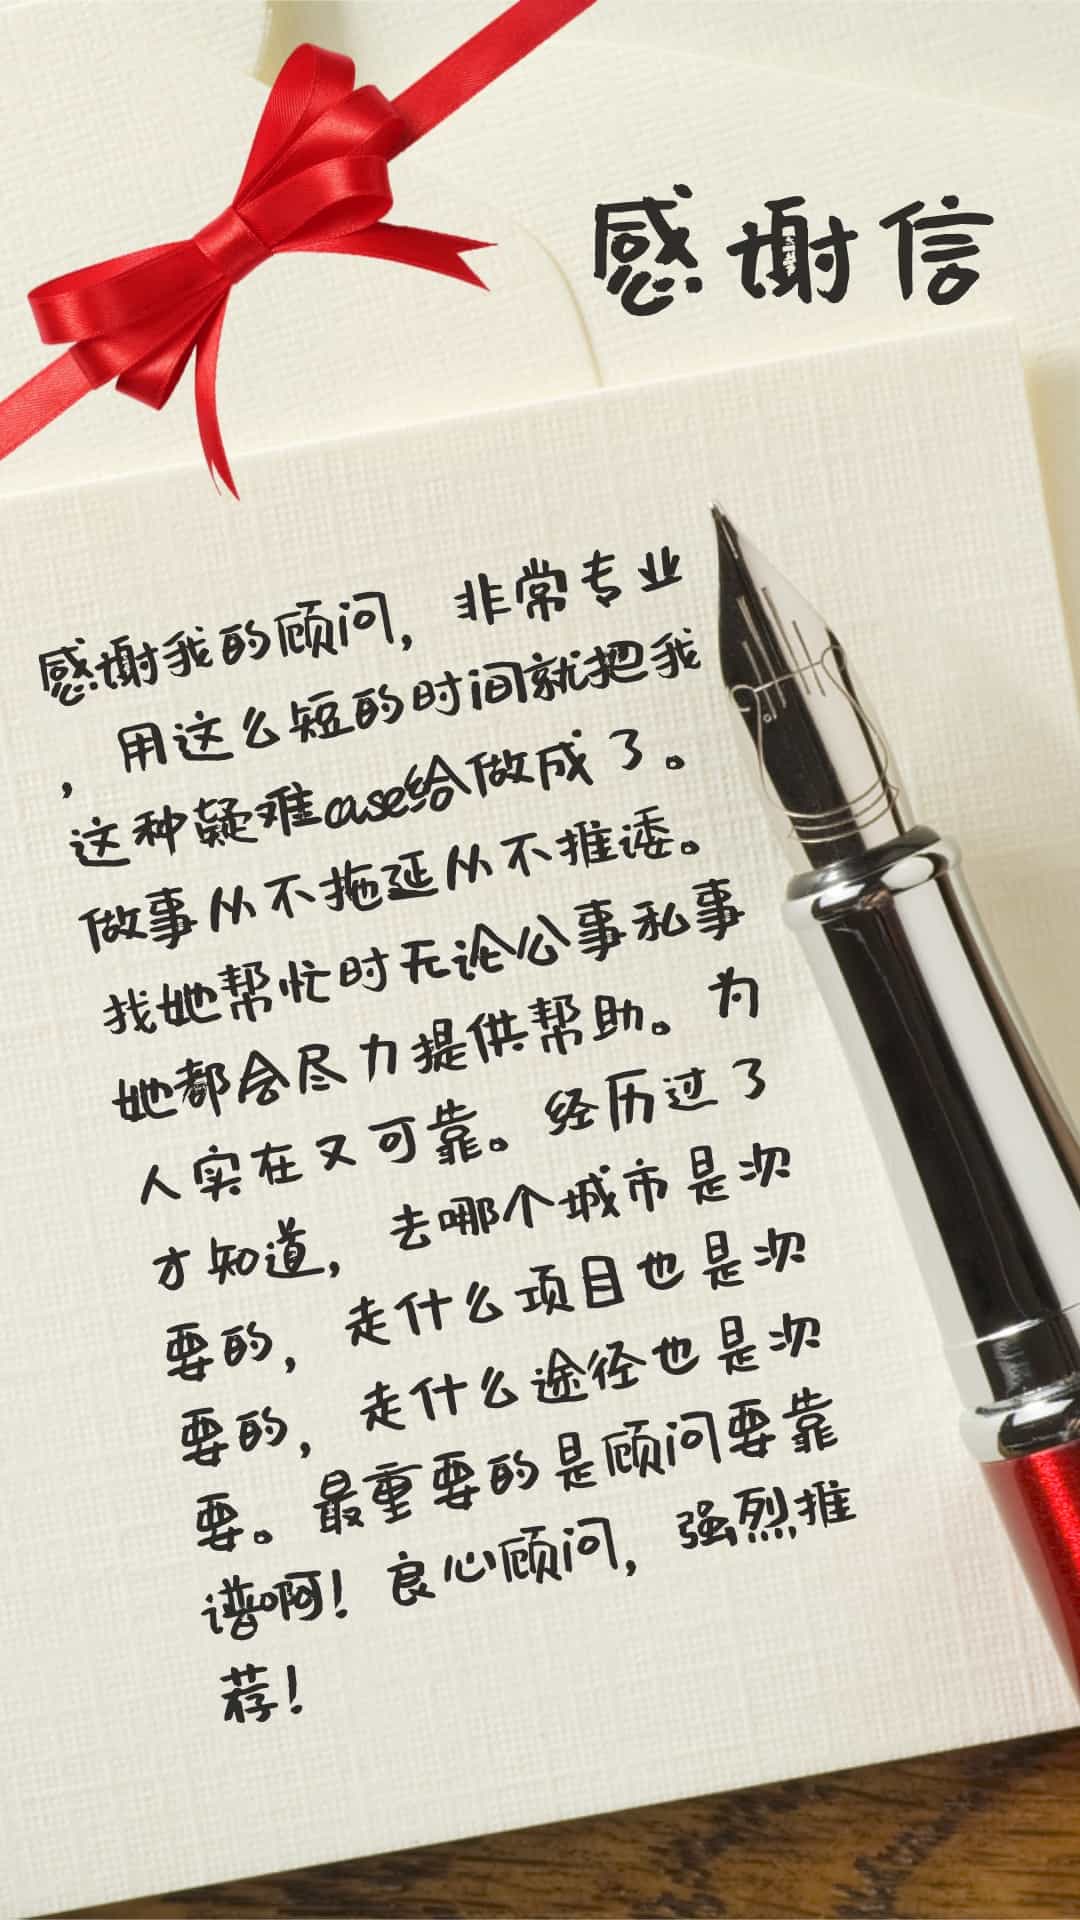 感谢信
感谢我的顾问，非常专业
，用这么短的时间就把我
这种疑难case给做成了。
做事从不拖延从不推诿。
找她帮忙时无论公事私事
她都会尽力提供帮助。为
人实在又可靠。经历过了
才知道，去哪个城市是次
要的，走什么项目也是次
要的，走什么途径也是次
要。最重要的是顾问要靠
谱啊！良心顾问，强烈推
荐！